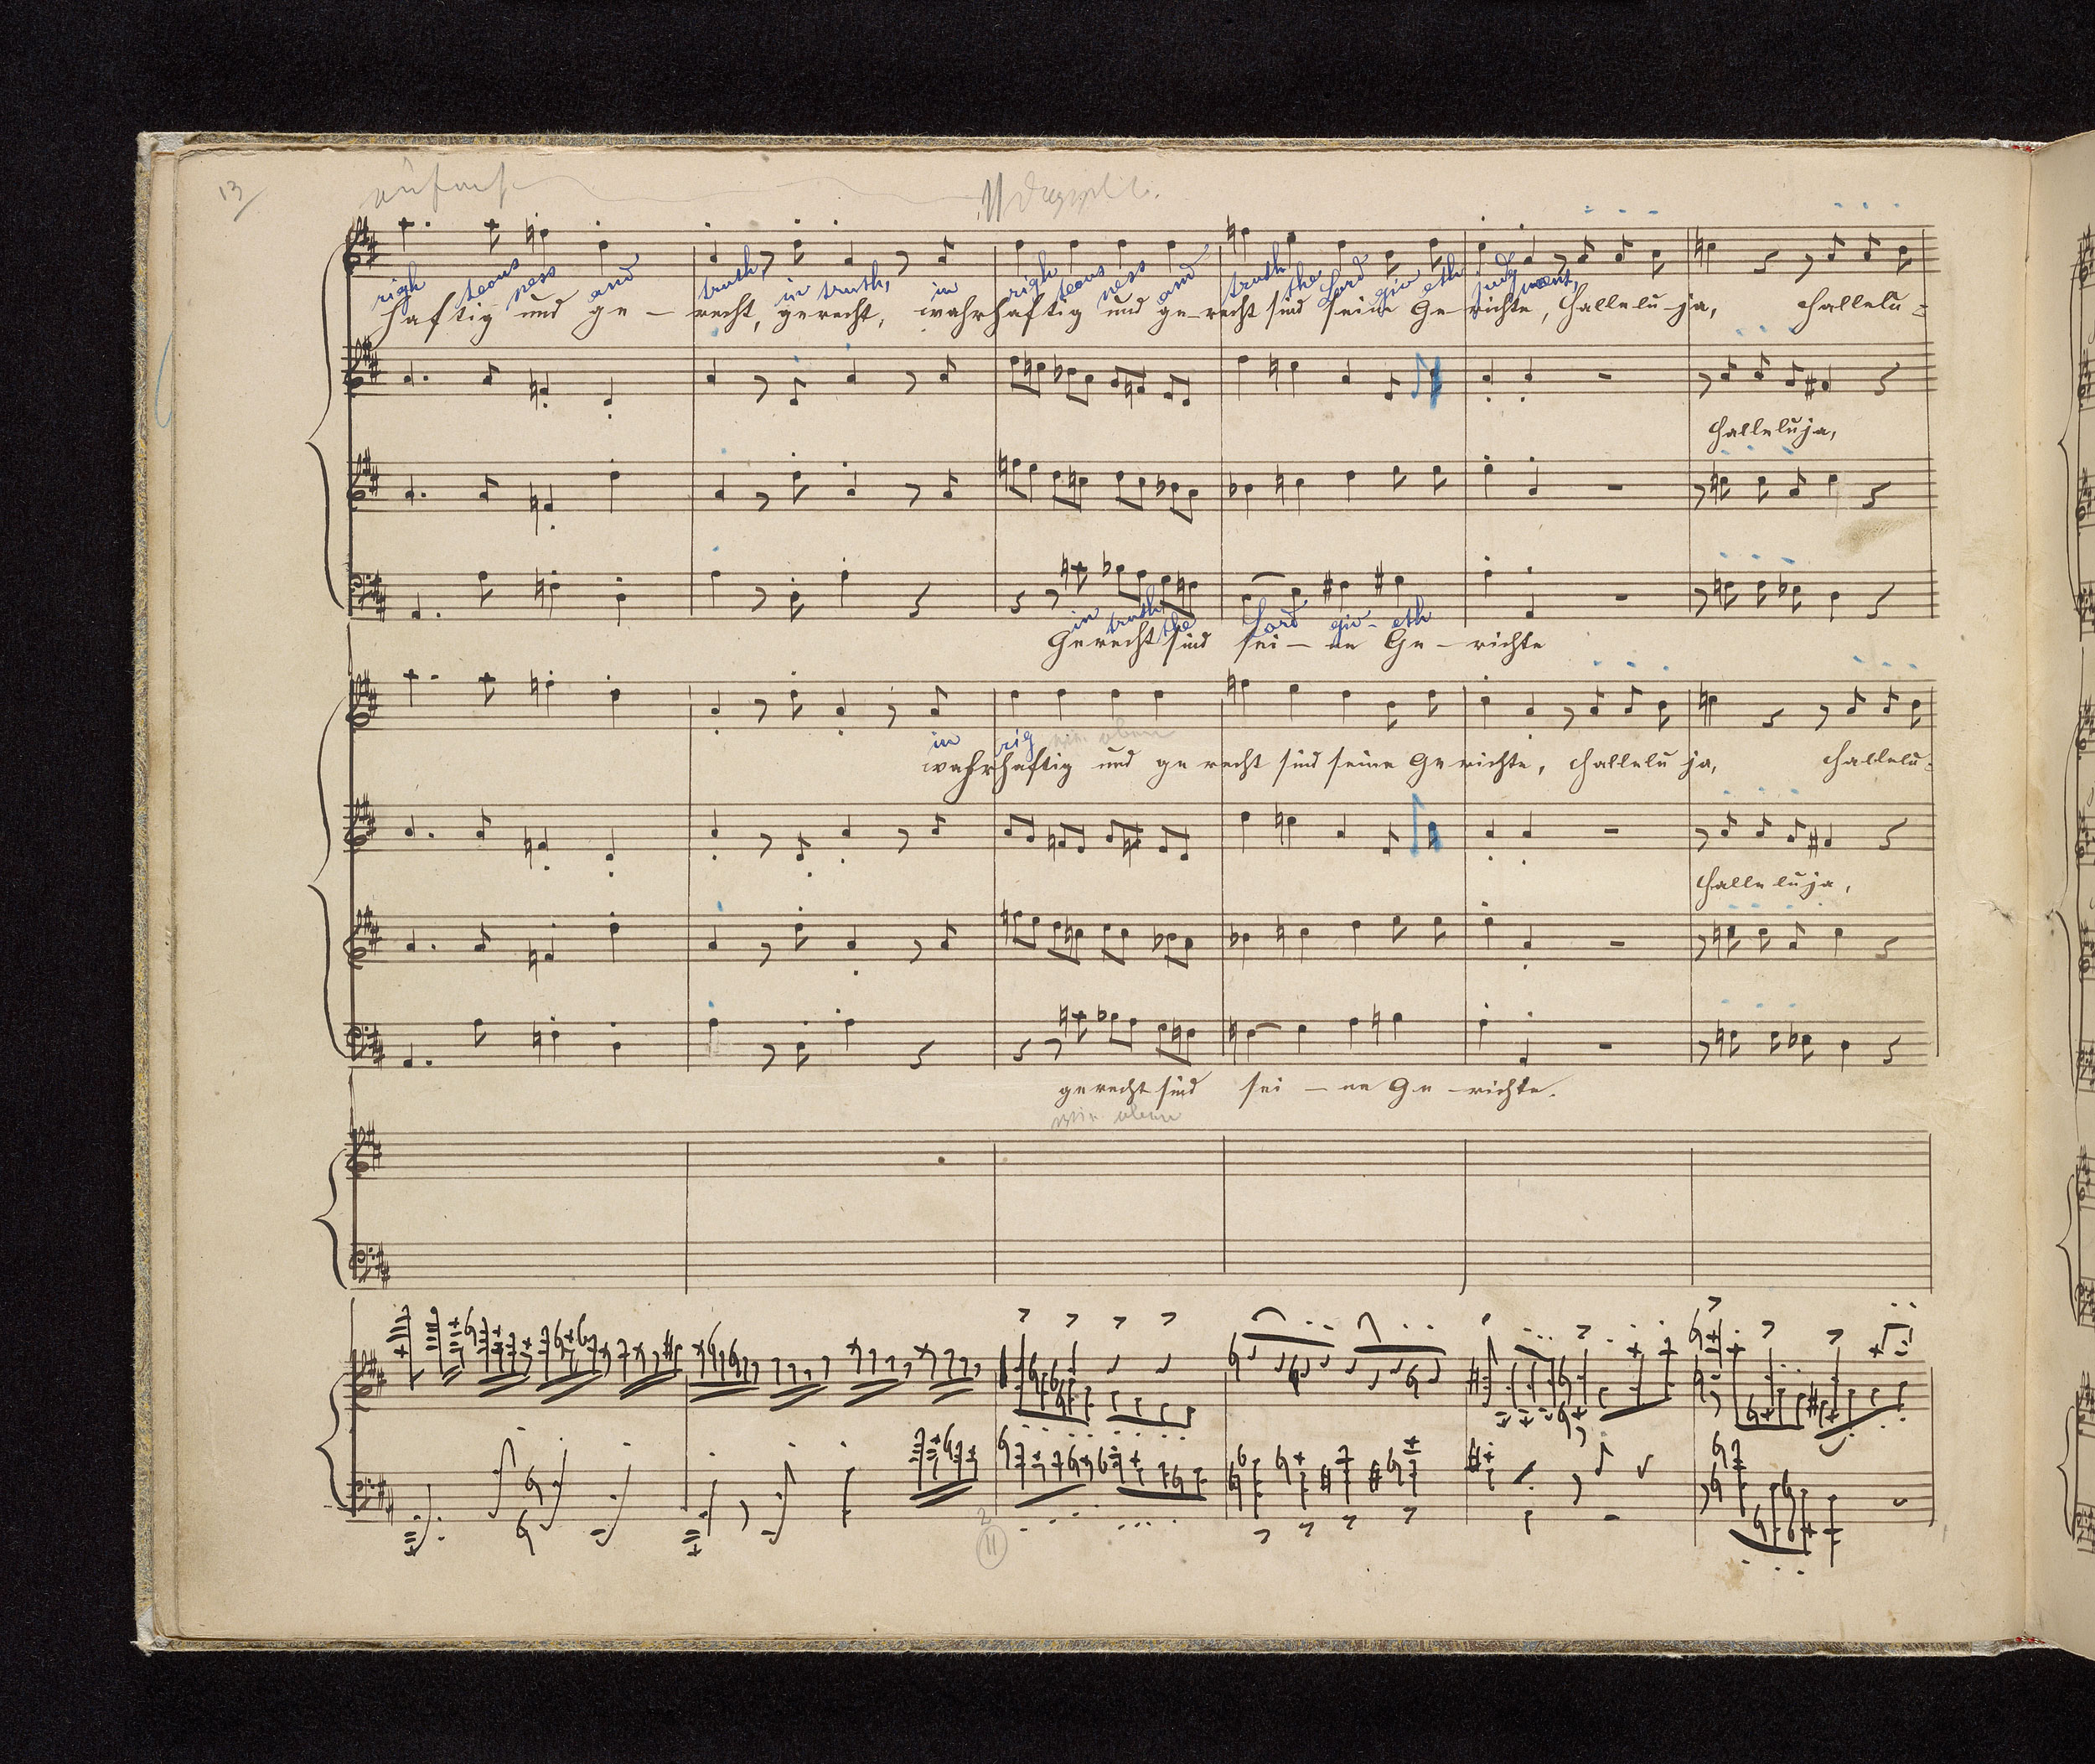 13
einfach
righ teous ness and truth, in truth, in righ teous ness and truth the Lord giv eth judg ment,
haftig und ge — recht, gerecht, wahrhaftig und ge-recht sind seine Ge-richte, Halleluja, Hallelu-
Halleluja,
in truth the Lord giv - eth
Gerecht sind sei — ne Ge — richte
in rig wie oben
wahrhaftig und ge recht sind seine Ge richte, Hallelu ja, Hallelu-
Halle luja,
gerecht sind sei — ne Ge — richte.
wie oben
2
11